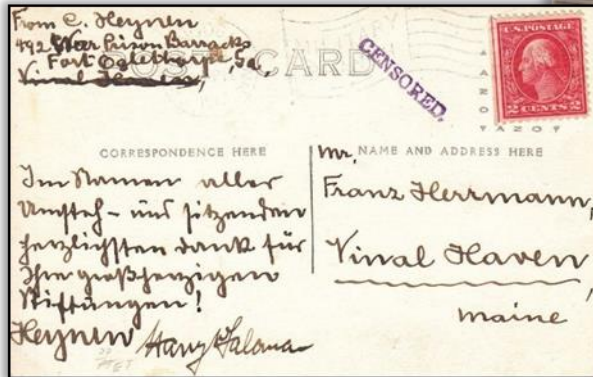 From C. Heynen
492 War Prison Barracks
Fort Oglethorpe, Ga,
Vinal Haven,
POST CARD
CENSORED.
U.S. POSTAGE
2 CENTS 2
AZO
CORRESPONDENCE HERE
Im Namen aller
Umsteh- und sitzenden
herzlichsten Dank für
Ihre großherzigen
Stiftungen!
Heynen
NAME AND ADDRESS HERE
Mr.
Franz Herrmann,
Vinal Haven,
Maine